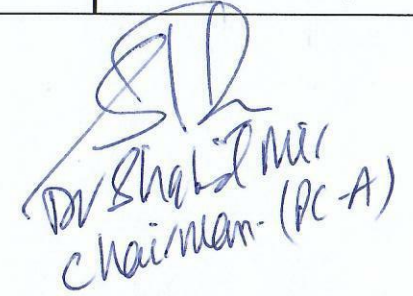 Dr Shahid Mir
Chairman - (PC-A)